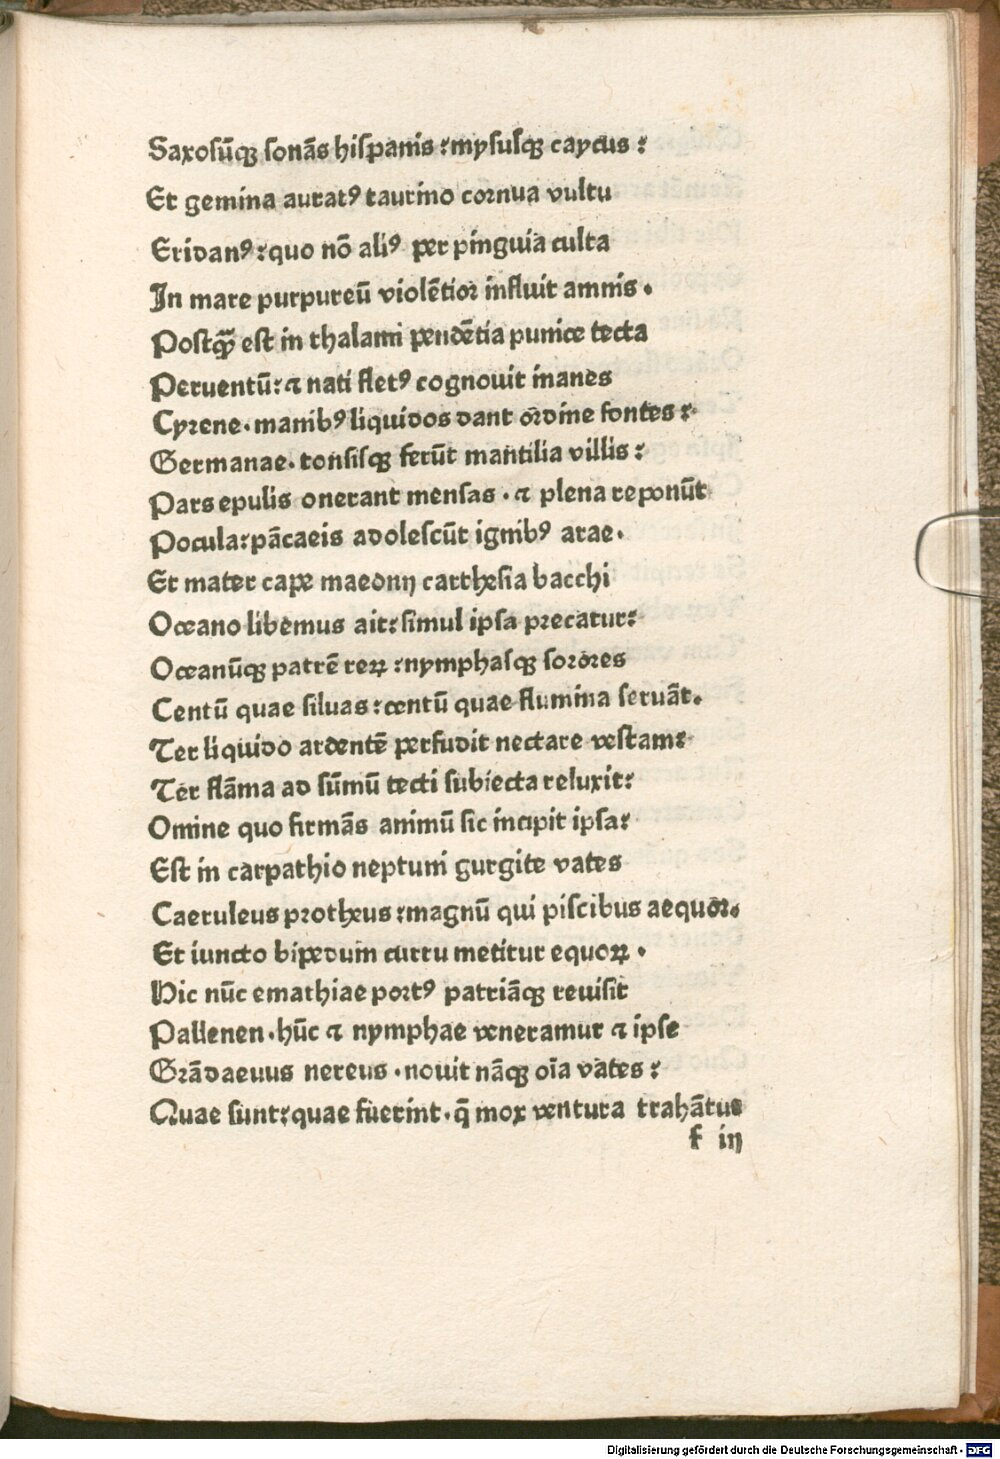 Saxosūqꝫ sonās hispanis : mysusqꝫ caycus :
Et gemina auratꝰ taurino cornua vultu
Eridanꝰ : quo nō aliꝰ per pinguia culta
In mare purpureū violētior influit amnis .
Postqꝫ̄ est in thalami pendētia pumice tecta
Peruentū : ⁊ nati fletꝰ cognouit inanes
Cyrene . manibꝰ liquidos dant ordine fontes :
Germanae . tonsisqꝫ ferūt mantilia villis :
Pars epulis onerant mensas . ⁊ plena reponūt
Pocula : pācaeis adolescūt ignibꝰ arae .
Et mater cape maeonij carthesia bacchi
Oceano libemus ait : simul ipsa precatur :
Oceanūqꝫ patrē reꝝ : nymphasqꝫ sorores
Centū quae siluas : centū quae flumina seruāt .
Ter liquido ardentē perfudit nectare vestam :
Ter flāma ad sūmū tecti subiecta reluxit :
Omine quo firmās animū sic incipit ipsa :
Est in carpathio neptuni gurgite vates
Caeruleus protheus : magnū qui piscibus aequor .
Et iuncto bipedum curru metitur equoꝝ .
Hic nūc emathiae portꝰ patriāqꝫ reuisit
Pallenen . hūc ⁊ nymphae veneramur ⁊ ipse
Grādaeuus nereus . nouit nāqꝫ oīa vates :
Quae sunt : quae fuerint . q̄ mox ventura trahātur
f iij
Digitalisierung gefördert durch die Deutsche Forschungsgemeinschaft - DFG